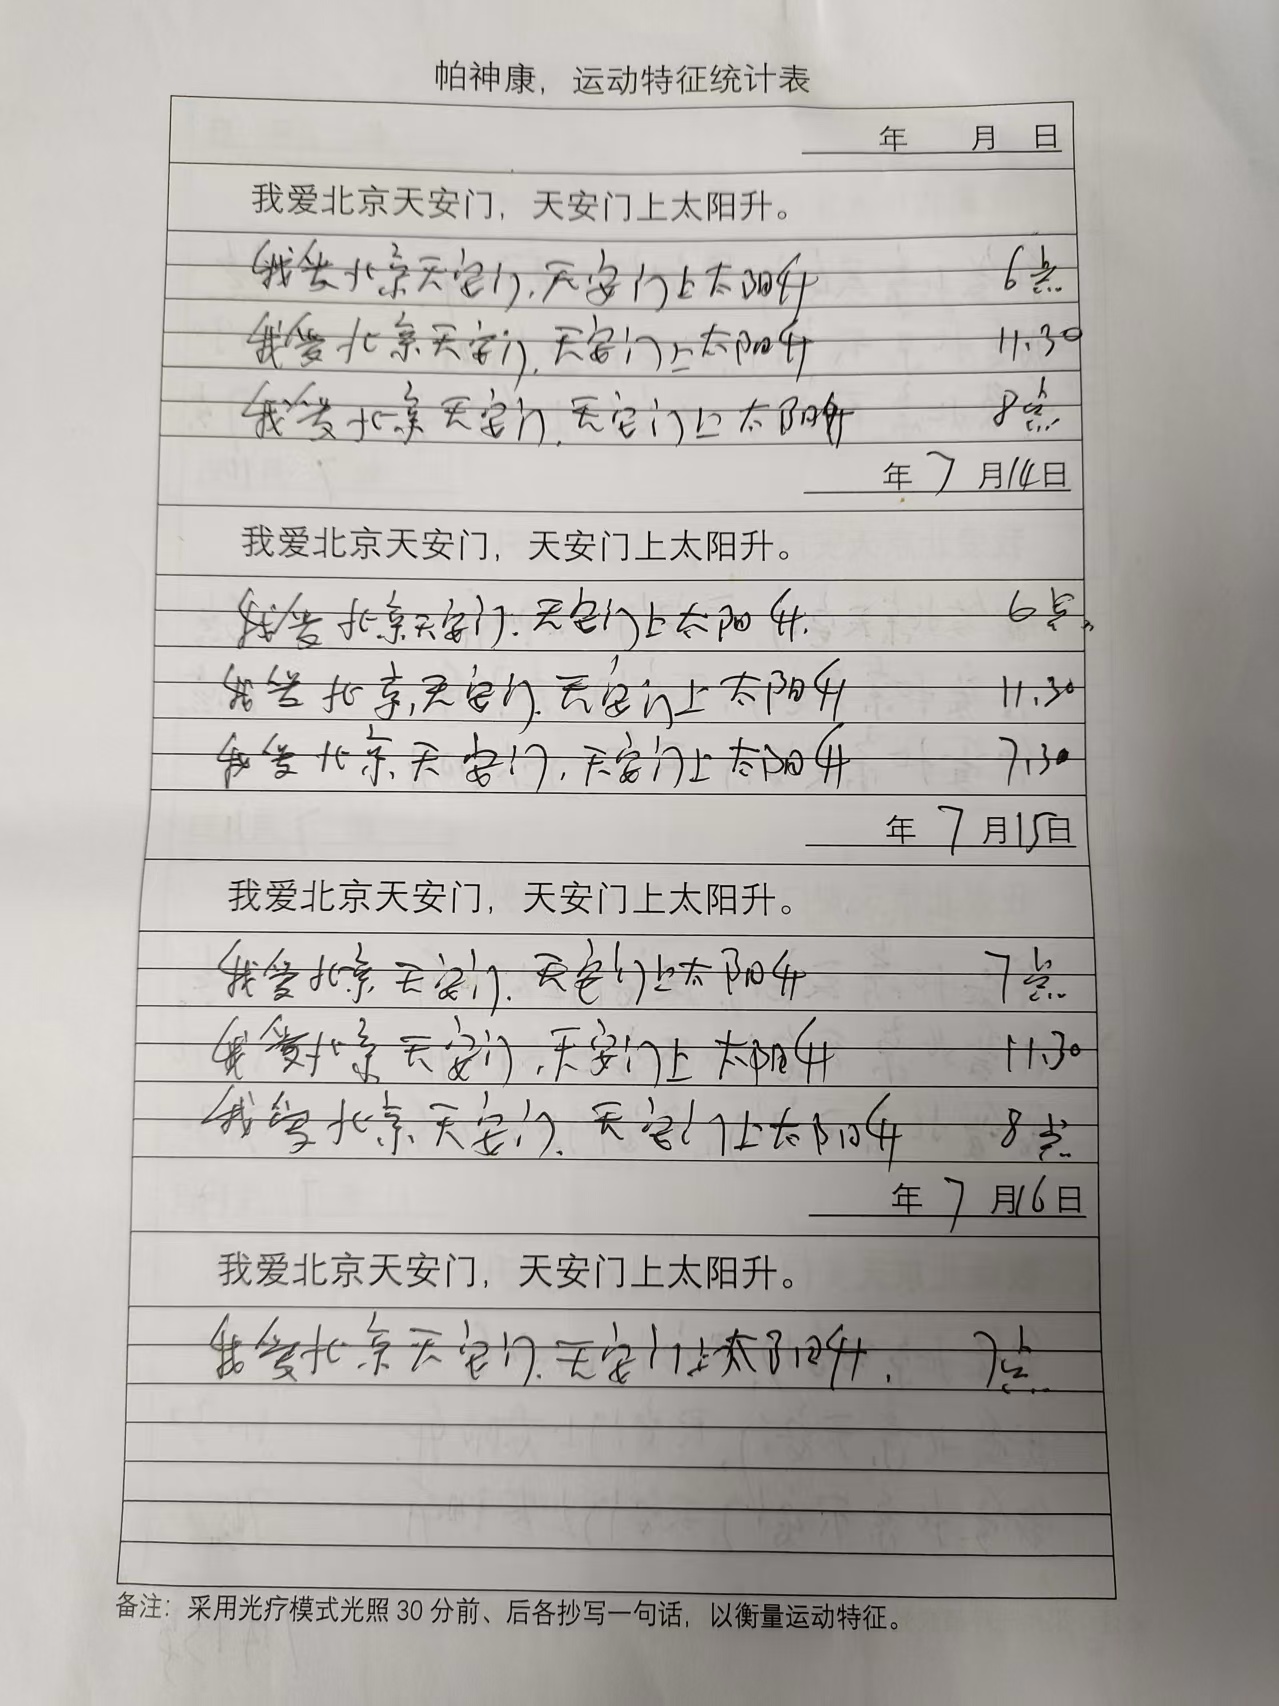 帕神康，运动特征统计表
年 月 日
我爱北京天安门，天安门上太阳升。
我爱北京天安门，天安门上太阳升 6点
我爱北京天安门，天安门上太阳升 11.30
我爱北京天安门，天安门上太阳升 8点
年 7 月14日
我爱北京天安门，天安门上太阳升。
我爱北京天安门．天安门上太阳升． 6点
我爱北京，天安门．天安门上太阳升 11.30
我爱北京天安门，天安门上太阳升 7.30
年 7 月15日
我爱北京天安门，天安门上太阳升。
我爱北京天安门．天安门上太阳升 7点
我爱北京天安门，天安门上太阳升 11.30
我爱北京天安门．天安门上太阳升 8点
年 7 月16日
我爱北京天安门，天安门上太阳升。
我爱北京天安门．天安门上太阳升． 7点
备注：采用光疗模式光照30分前、后各抄写一句话，以衡量运动特征。